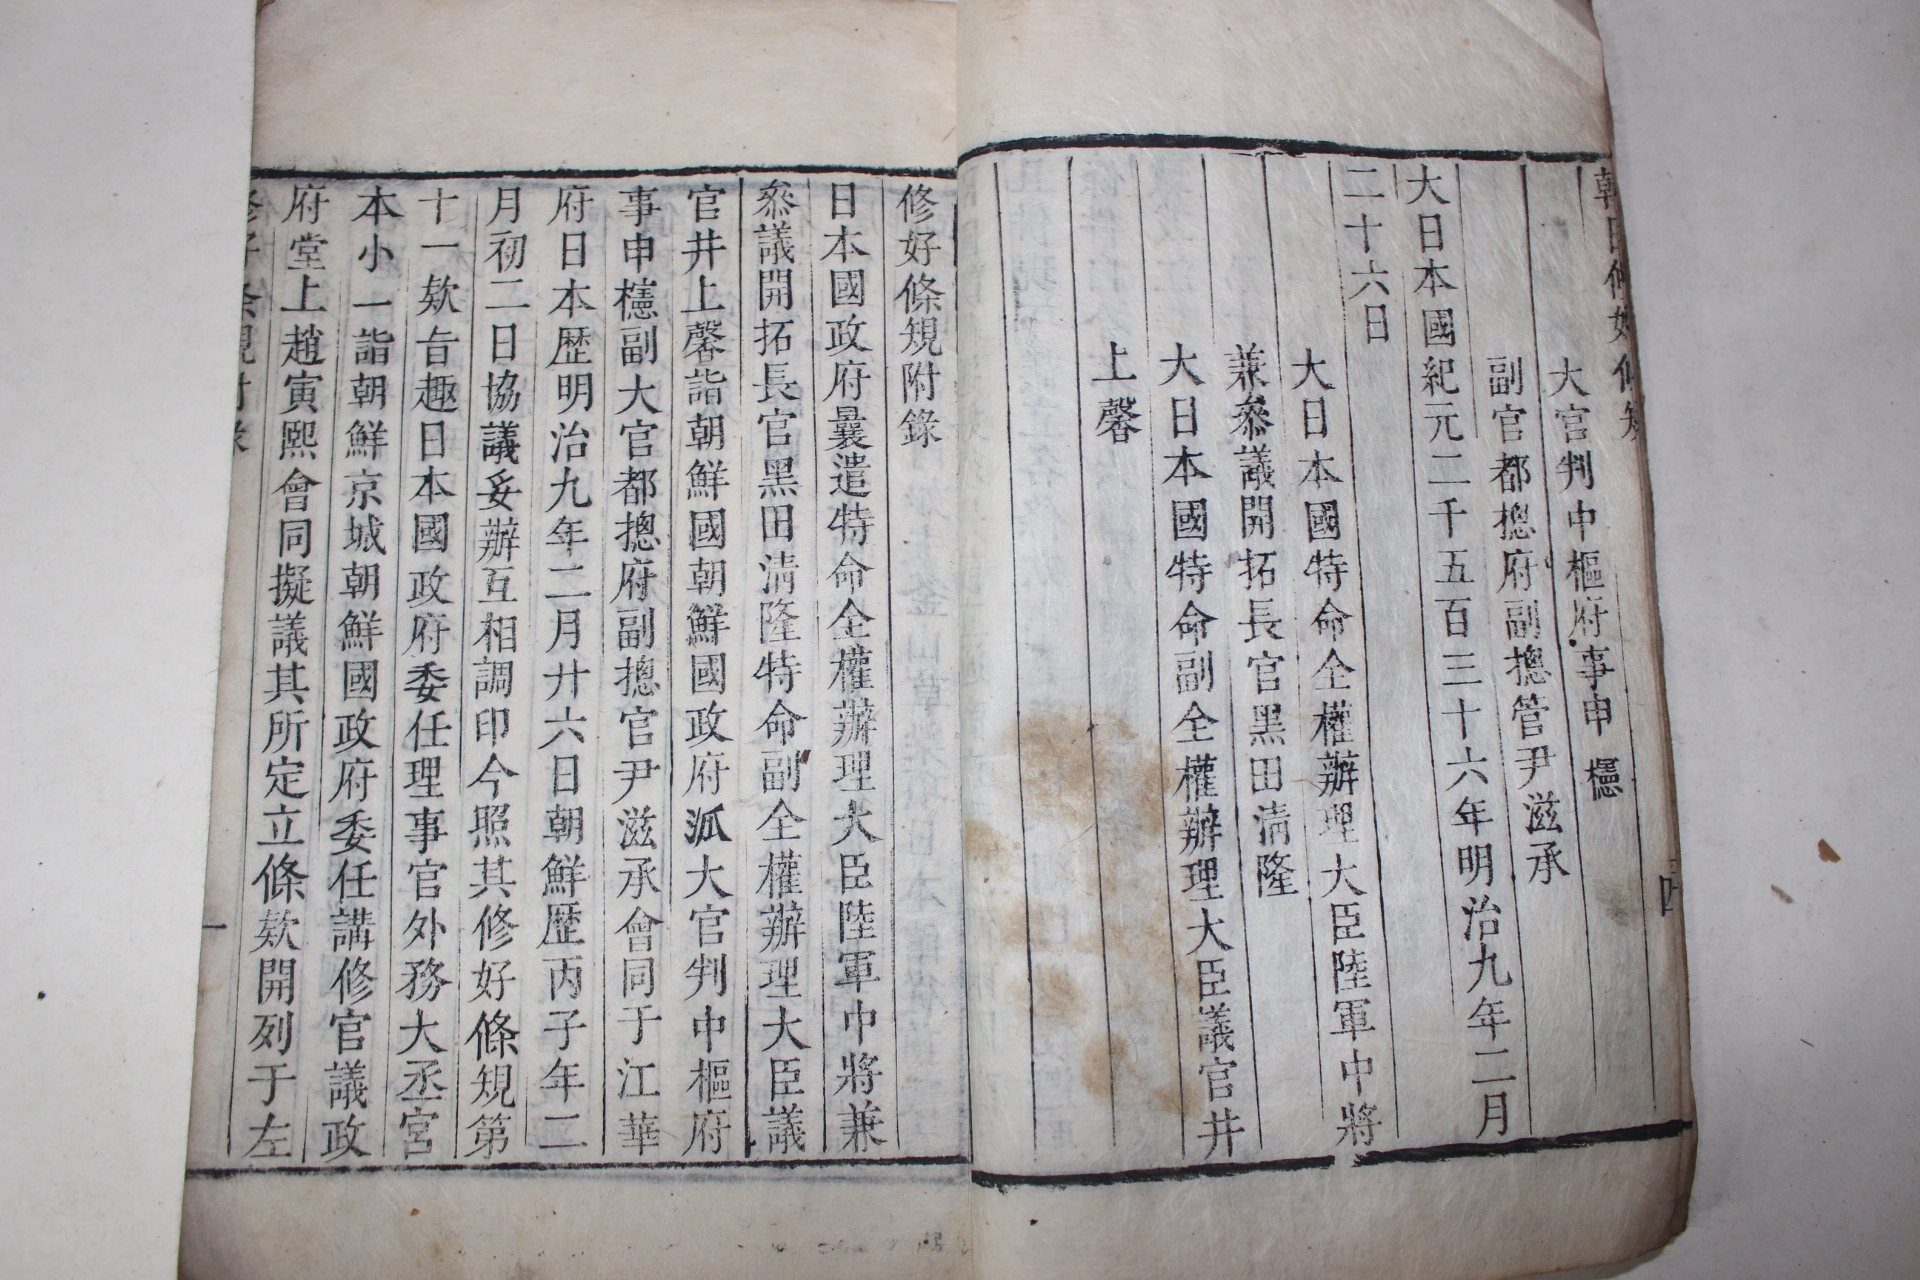 大官判中樞府事申櫶
副官都摠府副摠管尹滋承
大日本國紀元二千五百三十六年明治九年二月
二十六日
大日本國特命全權辦理大臣陸軍中將
兼叅議開拓長官黑田清隆
大日本國特命副全權辦理大臣議官井
上馨
四
修好條規附錄
日本國政府曩遣特命全權辦理大臣陸軍中將兼
叅議開拓長官黑田清隆特命副全權辦理大臣議
官井上馨詣朝鮮國朝鮮國政府派大官判中樞府
事申櫶副大官都摠府副摠官尹滋承會同于江華
府日本歷明治九年二月廿六日朝鮮歷丙子年二
月初二日協議妥辦互相調印今照其修好條規第
十一欵旨趣日本國政府委任理事官外務大丞宮
本小一詣朝鮮京城朝鮮國政府委任講修官議政
府堂上趙寅熙會同擬議其所定立條欵開列于左
一